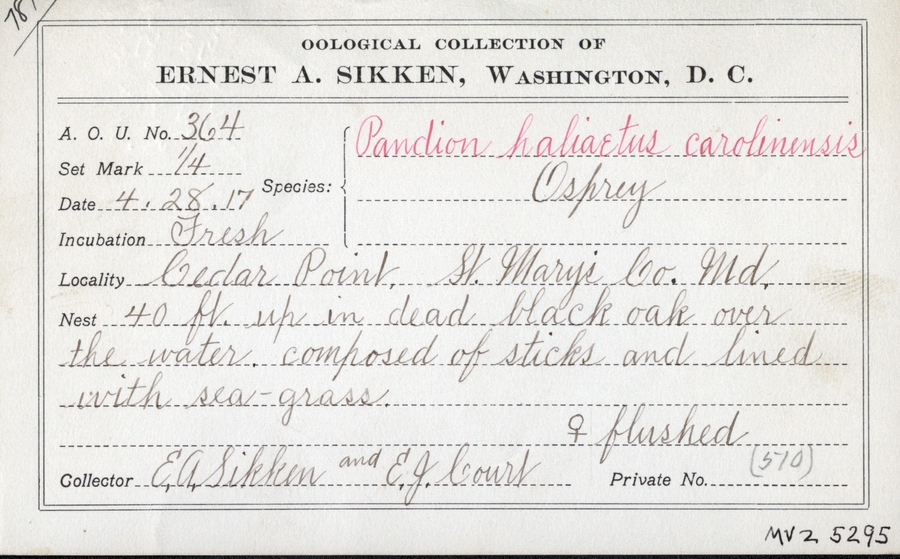 OOLOGICAL COLLECTION OF
ERNEST A. SIKKEN, WASHINGTON, D. C.
A. O. U. No. 364
Set Mark 1/4
Date 4. 28. 17
Incubation Fresh
Species: Pandion haliaetus carolinensis
Osprey
Locality Cedar Point, St. Mary's Co. Md.
Nest 40 ft. up in dead black oak over
the water. composed of sticks and lined
with sea-grass.
♀ flushed
Collector E.A. Sikken and E.J. Court Private No. (570)
MVZ 5295